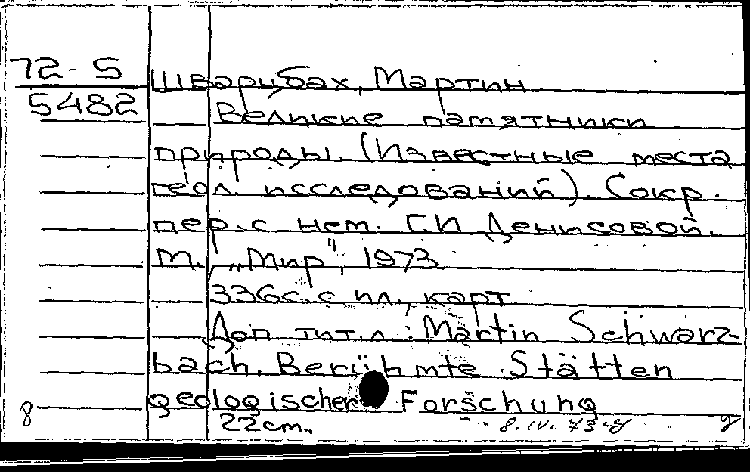 72-5
5482
Шварцбах, Мартин
Великие памятники
природы. (Известные места
геол. исследований). Сокр.
пер. с нем. Г.И Денисовой.
М., „Мир", 1973
336с. с ил., карт
Доп. тит. л.: Martin Schwarz-
bach. Berühmte Stätten
geologischer Forschung
8 22cm. 8.IV.73